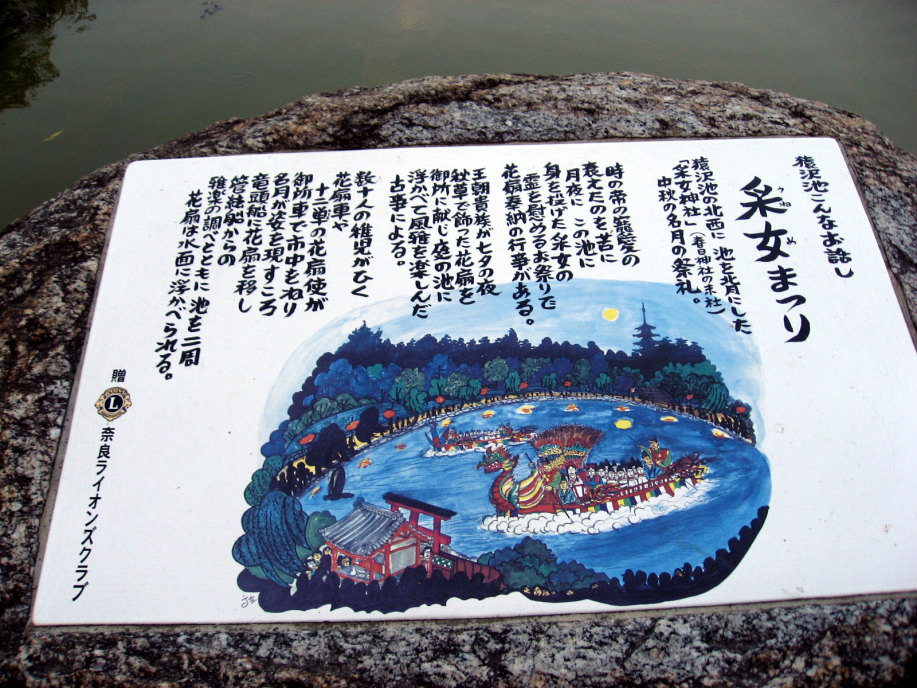 猿沢池こんなお話し
采女まつり
うねめ
猿沢池の北西に池を背にした
「采女神社」(春日神社の末社)
中秋の名月の祭礼。
時の帝の寵愛の
衰えたのを苦に
月夜に この池に
身を投げた采女の
霊を慰めるお祭りで
花扇奉納の行事がある。
王朝貴族が七夕の夜
秋草で飾った花扇を
御所に献じ庭の池に
浮かべて風雅を楽しんだ
古事による。
数十人の稚児がひく
花扇車や
十二単の花扇使が
御所車で市中をねり
名月が姿を現すころ
竜頭船に花扇を移し
管絃船からの
雅楽の調べとともに池を二周
花扇は水面に浮かべられる。
贈
L
奈良ライオンズクラブ